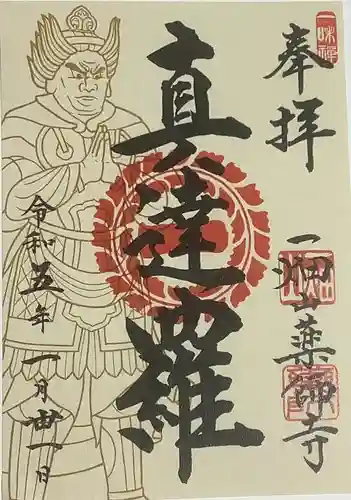 一味禅
奉拝
真達羅
一畑山薬師寺
令和五年一月廿一日